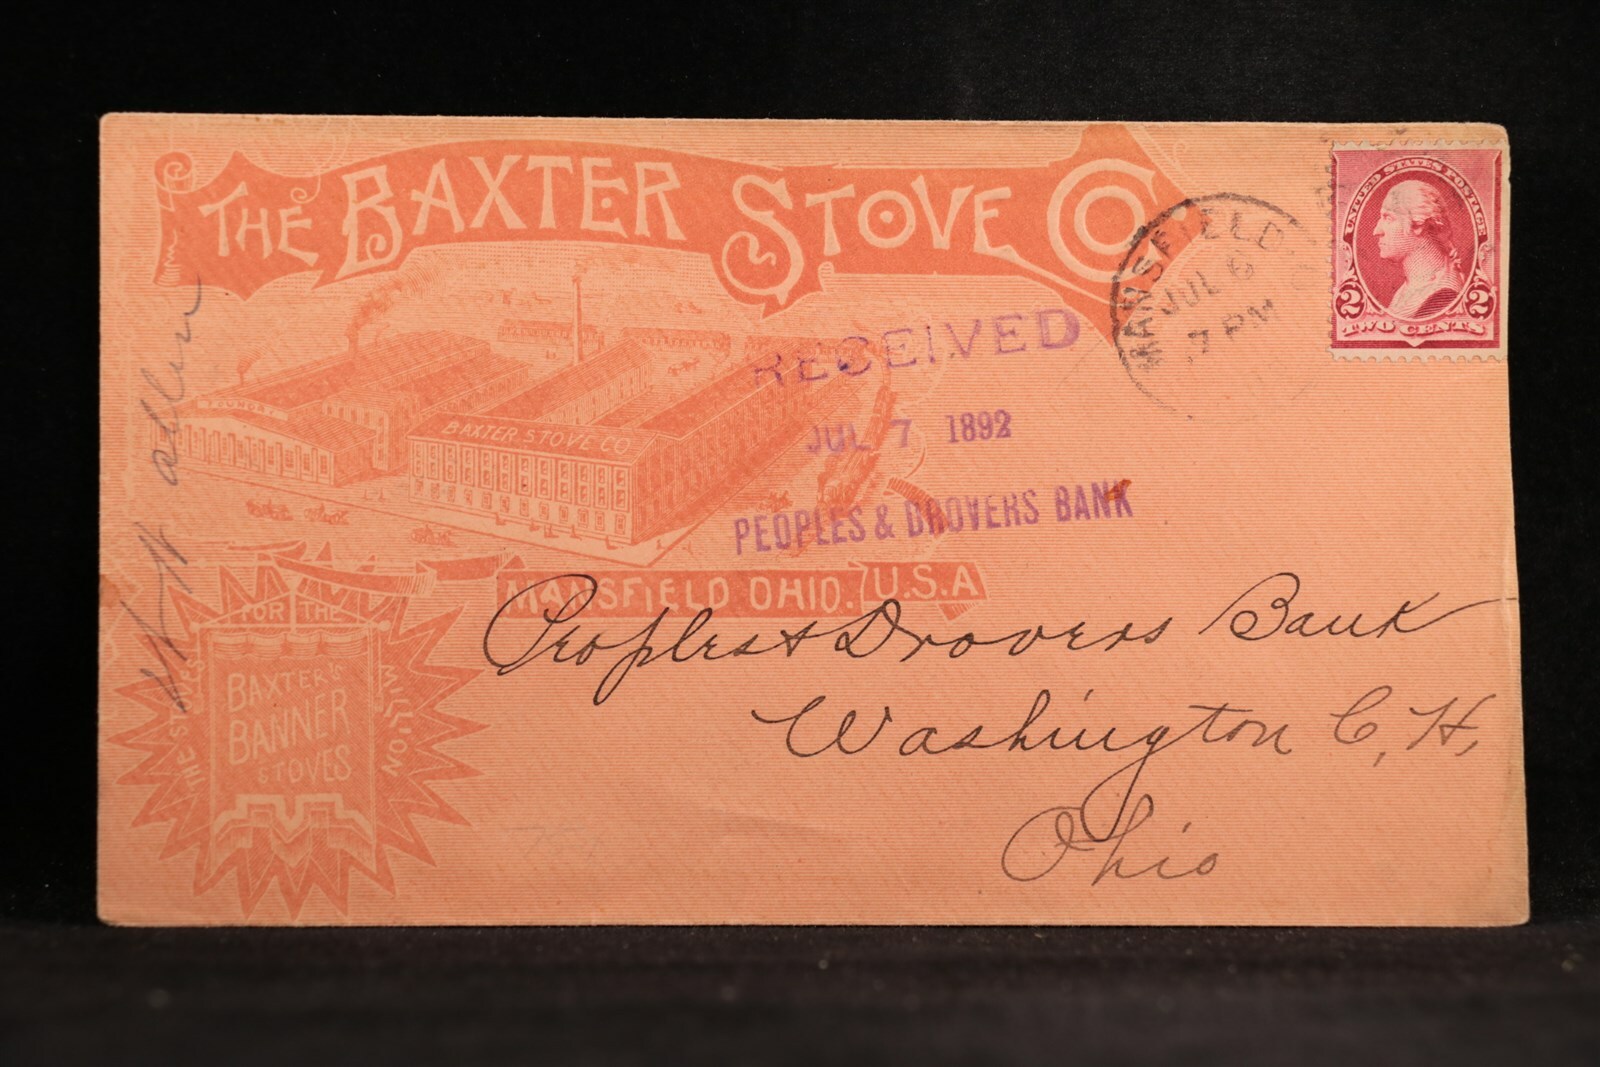 THE BAXTER STOVE CO
UNITED STATES POSTAGE
2 2
TWO CENTS
MANSFIELD
JUL 6
7 PM
RECEIVED
JUL 7 1892
PEOPLES & DROVERS BANK
FOUNDRY
BAXTER STOVE CO
MANSFIELD OHIO. U.S.A
THE STOVES FOR THE MILLION
BAXTER'S
BANNER
STOVES
Peoples & Drovers Bank
Washington C. H,
Ohio